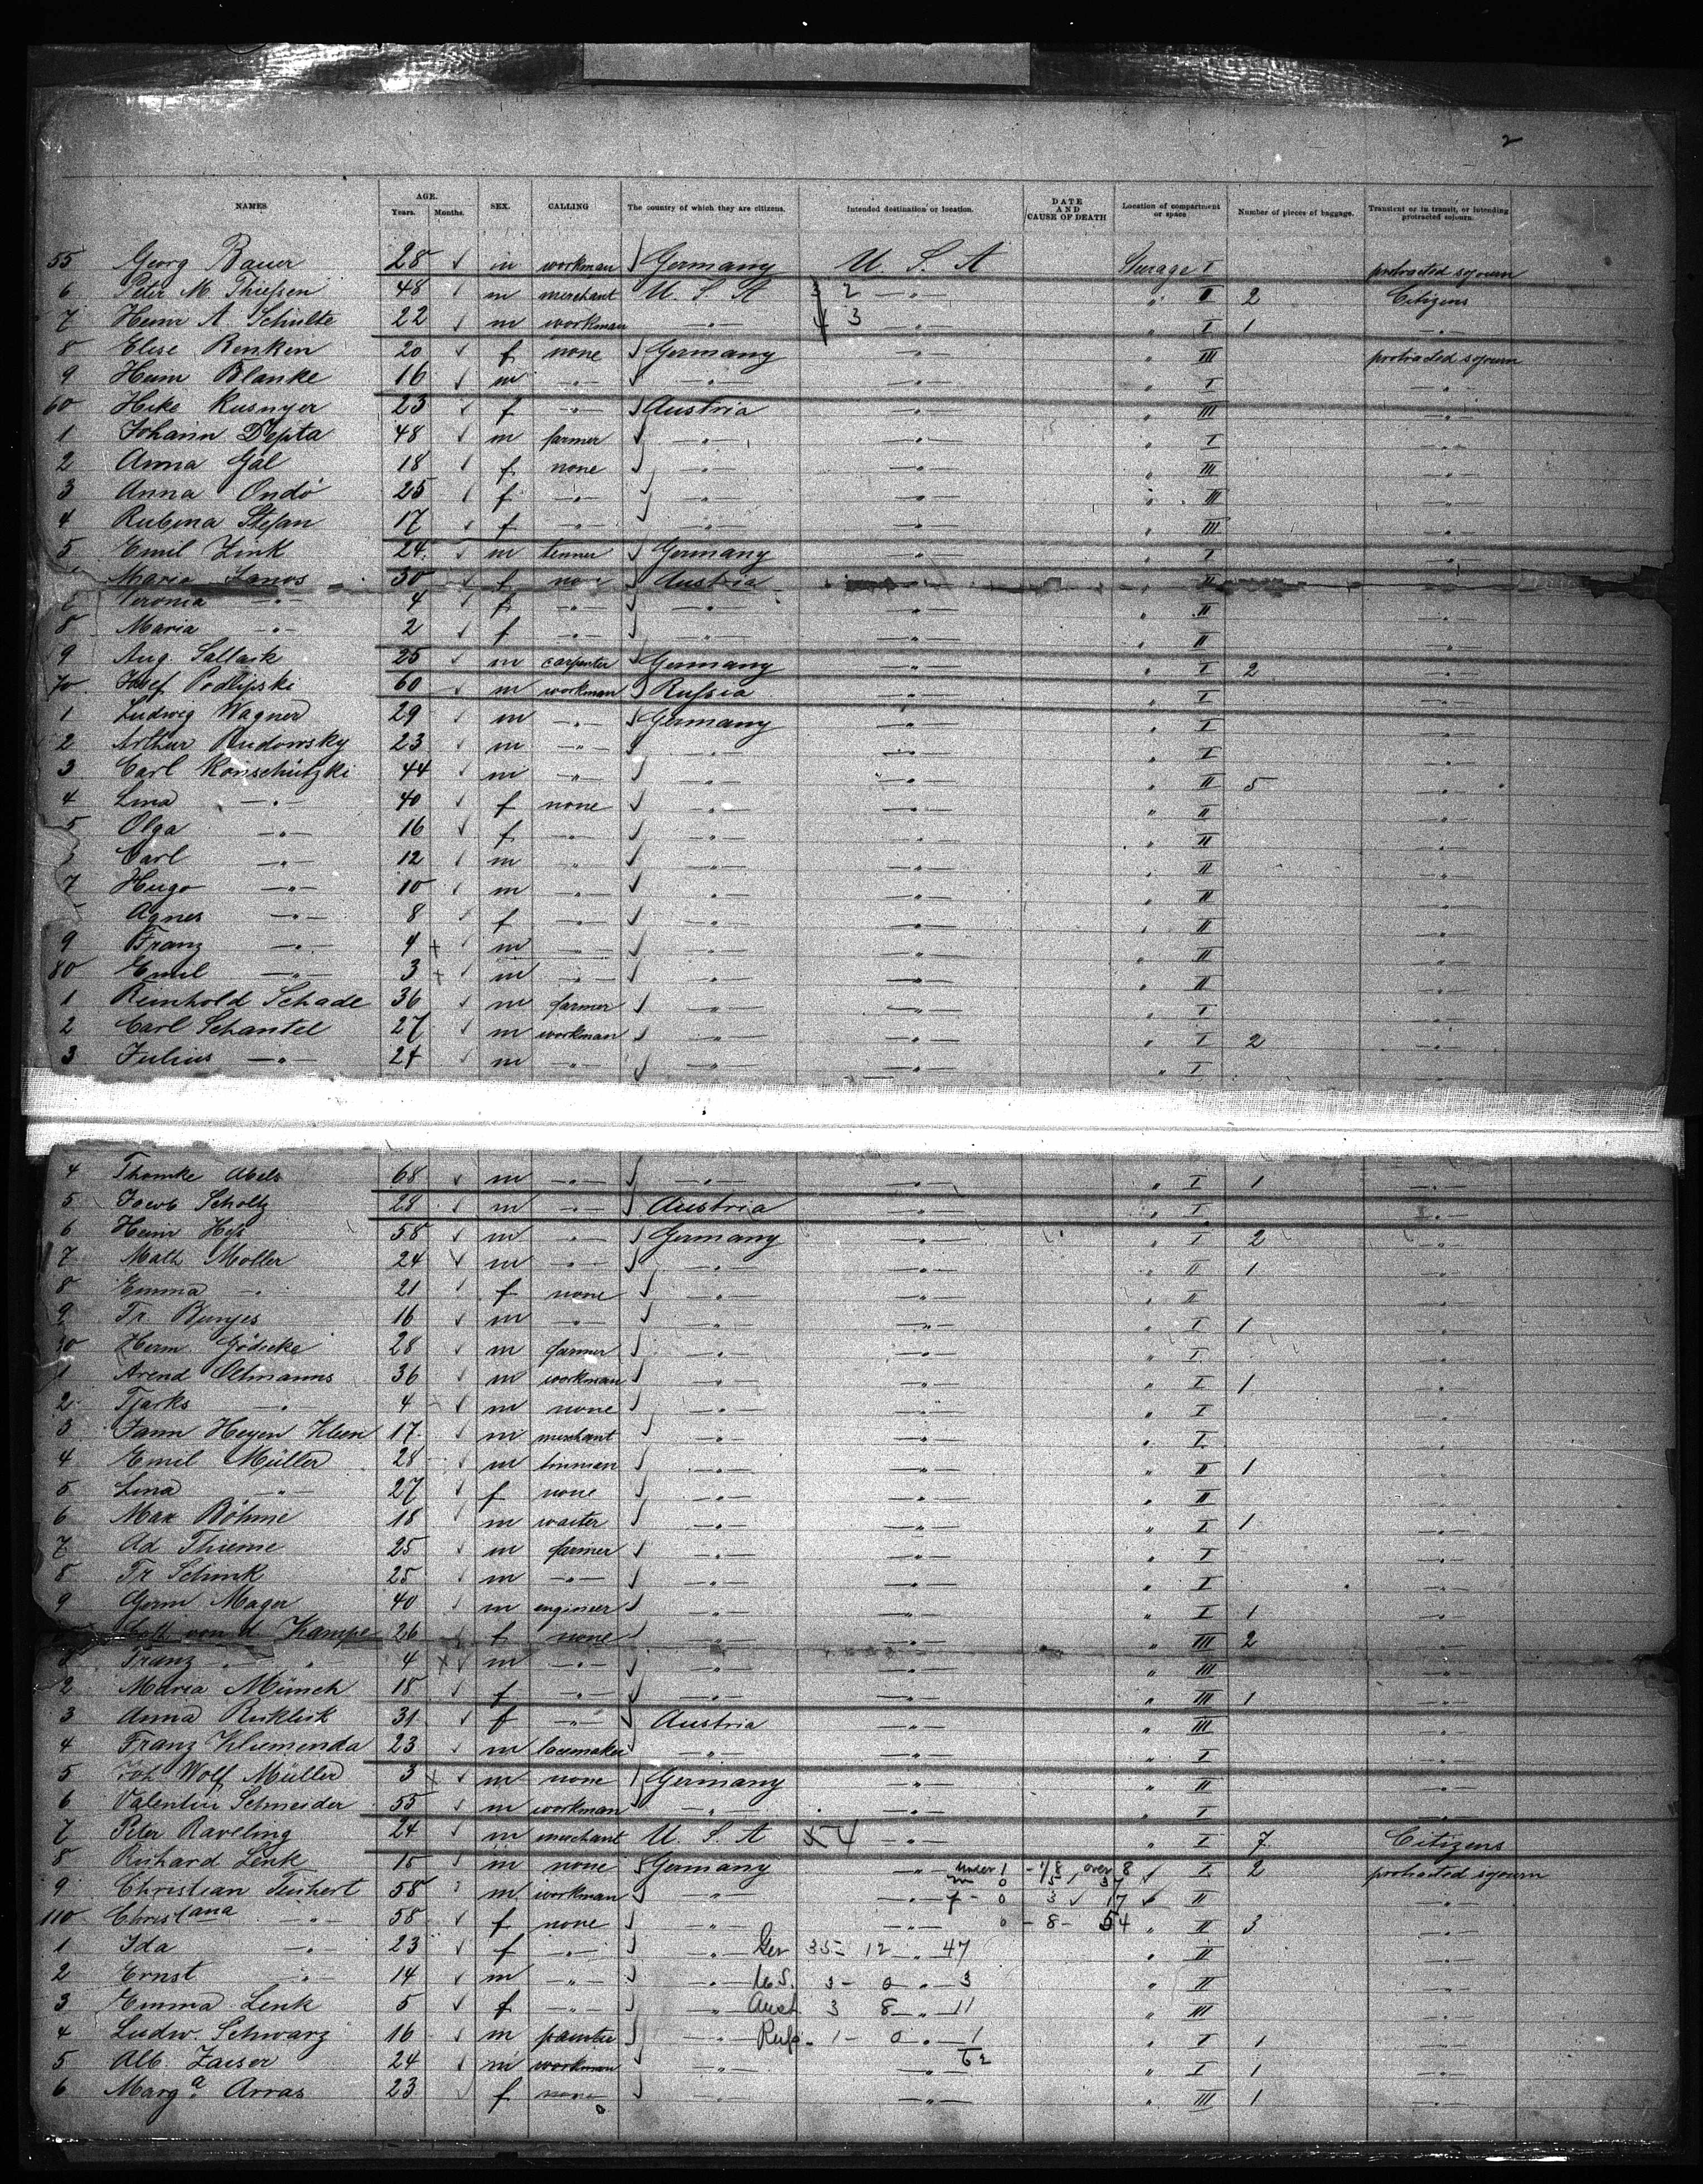 2
NAMES AGE. Years. Months. SEX. CALLING The country of which they are citizens. Intended destination or location. DATE AND CAUSE OF DEATH Location of compartment or space Number of pieces of baggage. Transient or in transit, or intending protracted sojourn.
55 Georg Bauer 28 ✓ m workman Germany U. S. A Steerage I protracted sojourn
6 Peter M. Thießen 48 m merchant U. S. A 3 2 —„— „ II 2 Citizens
7 Heinr A. Schulte 22 ✓ m workman —„— 4 3 —„— „ I 1 —„—
8 Elise Renken 20 ✓ f none Germany —„— „ III protracted sojourn
9 Heinr Blanke 16 ✓ m —„— —„— —„— „ I —„—
60 Heke Rusnyer 23 ✓ f —„— Austria —„— „ III —„—
1 Johann Depta 48 ✓ m farmer —„— —„— „ I —„—
2 Anna Gál 18 ✓ f none —„— —„— „ III —„—
3 Anna Ondó 25 ✓ f —„— —„— —„— „ III —„—
4 Rubina Stefan 17 ✓ f —„— —„— —„— „ III —„—
5 Emil Zink 24 ✓ m tenner Germany —„— „ I —„—
Maria Janos 30 ✓ f none Austria —„— „ II —„—
Veronia —„— 4 ✓ f —„— —„— —„— „ II —„—
8 Maria —„— 2 ✓ f —„— —„— —„— „ II —„—
9 Aug. Sallask 25 ✓ m carpenter Germany —„— „ I 2 —„—
70 Josef Podlipski 60 ✓ m workman Russia —„— „ I —„—
1 Ludwig Wagner 29 ✓ m —„— Germany —„— „ I —„—
2 Arthur Rudowsky 23 ✓ m —„— —„— —„— „ I —„—
3 Carl Konschützki 44 ✓ m —„— —„— —„— „ II 5 —„—
4 Lina —„— 40 ✓ f none —„— —„— „ II —„—
5 Olga —„— 16 ✓ f —„— —„— —„— „ II —„—
Carl —„— 12 ✓ m —„— —„— —„— „ II —„—
7 Hugo —„— 10 ✓ m —„— —„— —„— „ II —„—
Agnes —„— 8 ✓ f —„— —„— —„— „ II —„—
9 Franz —„— 4 + ✓ m —„— —„— —„— „ II —„—
80 Emil —„— 3 + ✓ m —„— —„— —„— „ II —„—
1 Reinhold Schade 36 ✓ m farmer —„— —„— „ I —„—
2 Carl Schantel 27 ✓ m workman —„— —„— „ I 2 —„—
3 Julius —„— 24 ✓ m —„— —„— —„— „ I —„—
4 Thomke Abels 68 ✓ m —„— —„— —„— „ I 1 —„—
5 Jacob Scholtz 28 ✓ m —„— Austria —„— „ I —„—
6 Heinr 58 ✓ m —„— Germany —„— „ I 2 —„—
7 Math Moller 24 ✓ m —„— —„— —„— „ II 1 —„—
8 Emma —„— 21 ✓ f none —„— —„— „ II —„—
9 Fr. Bunjes 16 ✓ m —„— —„— —„— „ I 1 —„—
90 Herm. Gödicke 28 ✓ m farmer —„— —„— „ I —„—
1 Arend Oltmanns 36 ✓ m workman —„— —„— „ I 1 —„—
2 Tjarks —„— 4 ✓ m none —„— —„— „ I —„—
3 Jann Heyen Kleen 17 ✓ m merchant —„— —„— „ I —„—
4 Emil Müller 28 ✓ m tinman —„— —„— „ II 1 —„—
5 Lina —„— 27 ✓ f none —„— —„— „ II —„—
6 Max Böhme 18 ✓ m waiter —„— —„— „ I 1 —„—
7 Ad Thieme 25 ✓ m farmer —„— —„— „ I —„—
8 Fr Schink 25 ✓ m —„— —„— —„— „ I —„—
9 Germ Mager 40 ✓ m engineer —„— —„— „ I 1 —„—
von d. Kampe 26 ✓ f none —„— —„— „ III 2 —„—
1 Franz —„— 4 x ✓ m —„— —„— —„— „ III —„—
2 Maria Münch 18 ✓ f —„— —„— —„— „ III 1 —„—
3 Anna 31 ✓ f —„— Austria —„— „ III —„—
4 Franz Kliemenda 23 ✓ m lacemaker —„— —„— „ I —„—
5 Joh Wolf Müller 3 x ✓ m none Germany —„— „ II —„—
6 Valentin Schneider 55 ✓ m workman —„— —„— „ I —„—
7 Peter Raveling 24 ✓ m merchant U. S. A x 4 —„— „ I 7 Citizens
8 Richard Link 15 ✓ m none Germany —„— under 1 - 1/8, over 8 ✓ I 2 protracted sojourn
9 Christian Teichert 58 ✓ m workman —„— —„— m 0 5 37 ✓ II
110 Christiana —„— 58 ✓ f none —„— —„— f - 0 3 ✓ 17 0 - 8 - 54 „ II 3 —„—
1 Ida —„— 23 ✓ f —„— —„— Ger 35 - 12 —„— 47 „ II —„—
2 Ernst —„— 14 ✓ m —„— —„— U.S. 3 - 0 —„— 3 „ II —„—
3 Emma Lenk 5 ✓ f —„— —„— Aust 3 8 —„— 11 „ III —„—
4 Ludw. Schwarz 16 ✓ m painter —„— Russ - 1 - 0 —„— 1 „ I 1 —„—
5 Alb. Zaiser 24 ✓ m workman —„— —„— 62 „ I 1 —„—
6 Marg.a Arras 23 ✓ f none —„— —„— „ III 1 —„—